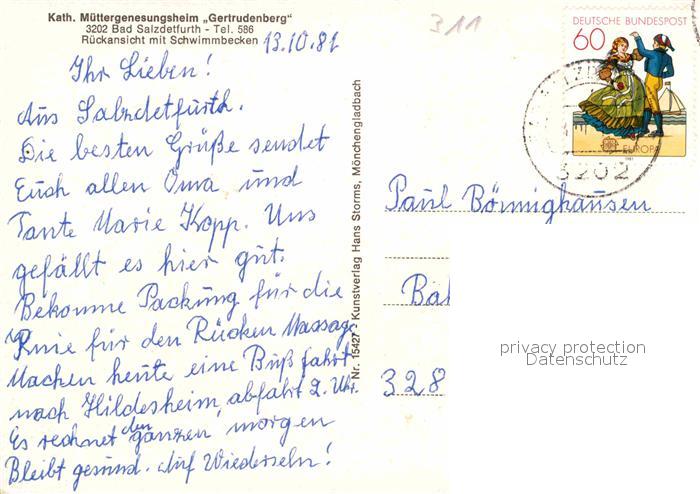 Kath. Müttergenesungsheim „Gertrudenberg"
3202 Bad Salzdetfurth - Tel. 586
Rückansicht mit Schwimmbecken
13.10.81
311
Ihr Lieben!
Aus Salzdetfurth.
Die besten Grüße sendet
Euch allen Oma und
Tante Marie Kopp. Uns
gefällt es hier gut.
Bekomme Packung für die
Knie für den Rücken Massage
Machen heute eine Bußfahrt
nach Hildesheim, abfahrt 2. Uhr.
Es rechnet den ganzen morgen
Bleibt gesund. Auf Wiedersehn!
Nr. 15427 · Kunstverlag Hans Storms, Mönchengladbach
DEUTSCHE BUNDESPOST
60
EUROPA
3202
Paul Bönnighausen
Bad
328
privacy protection
Datenschutz